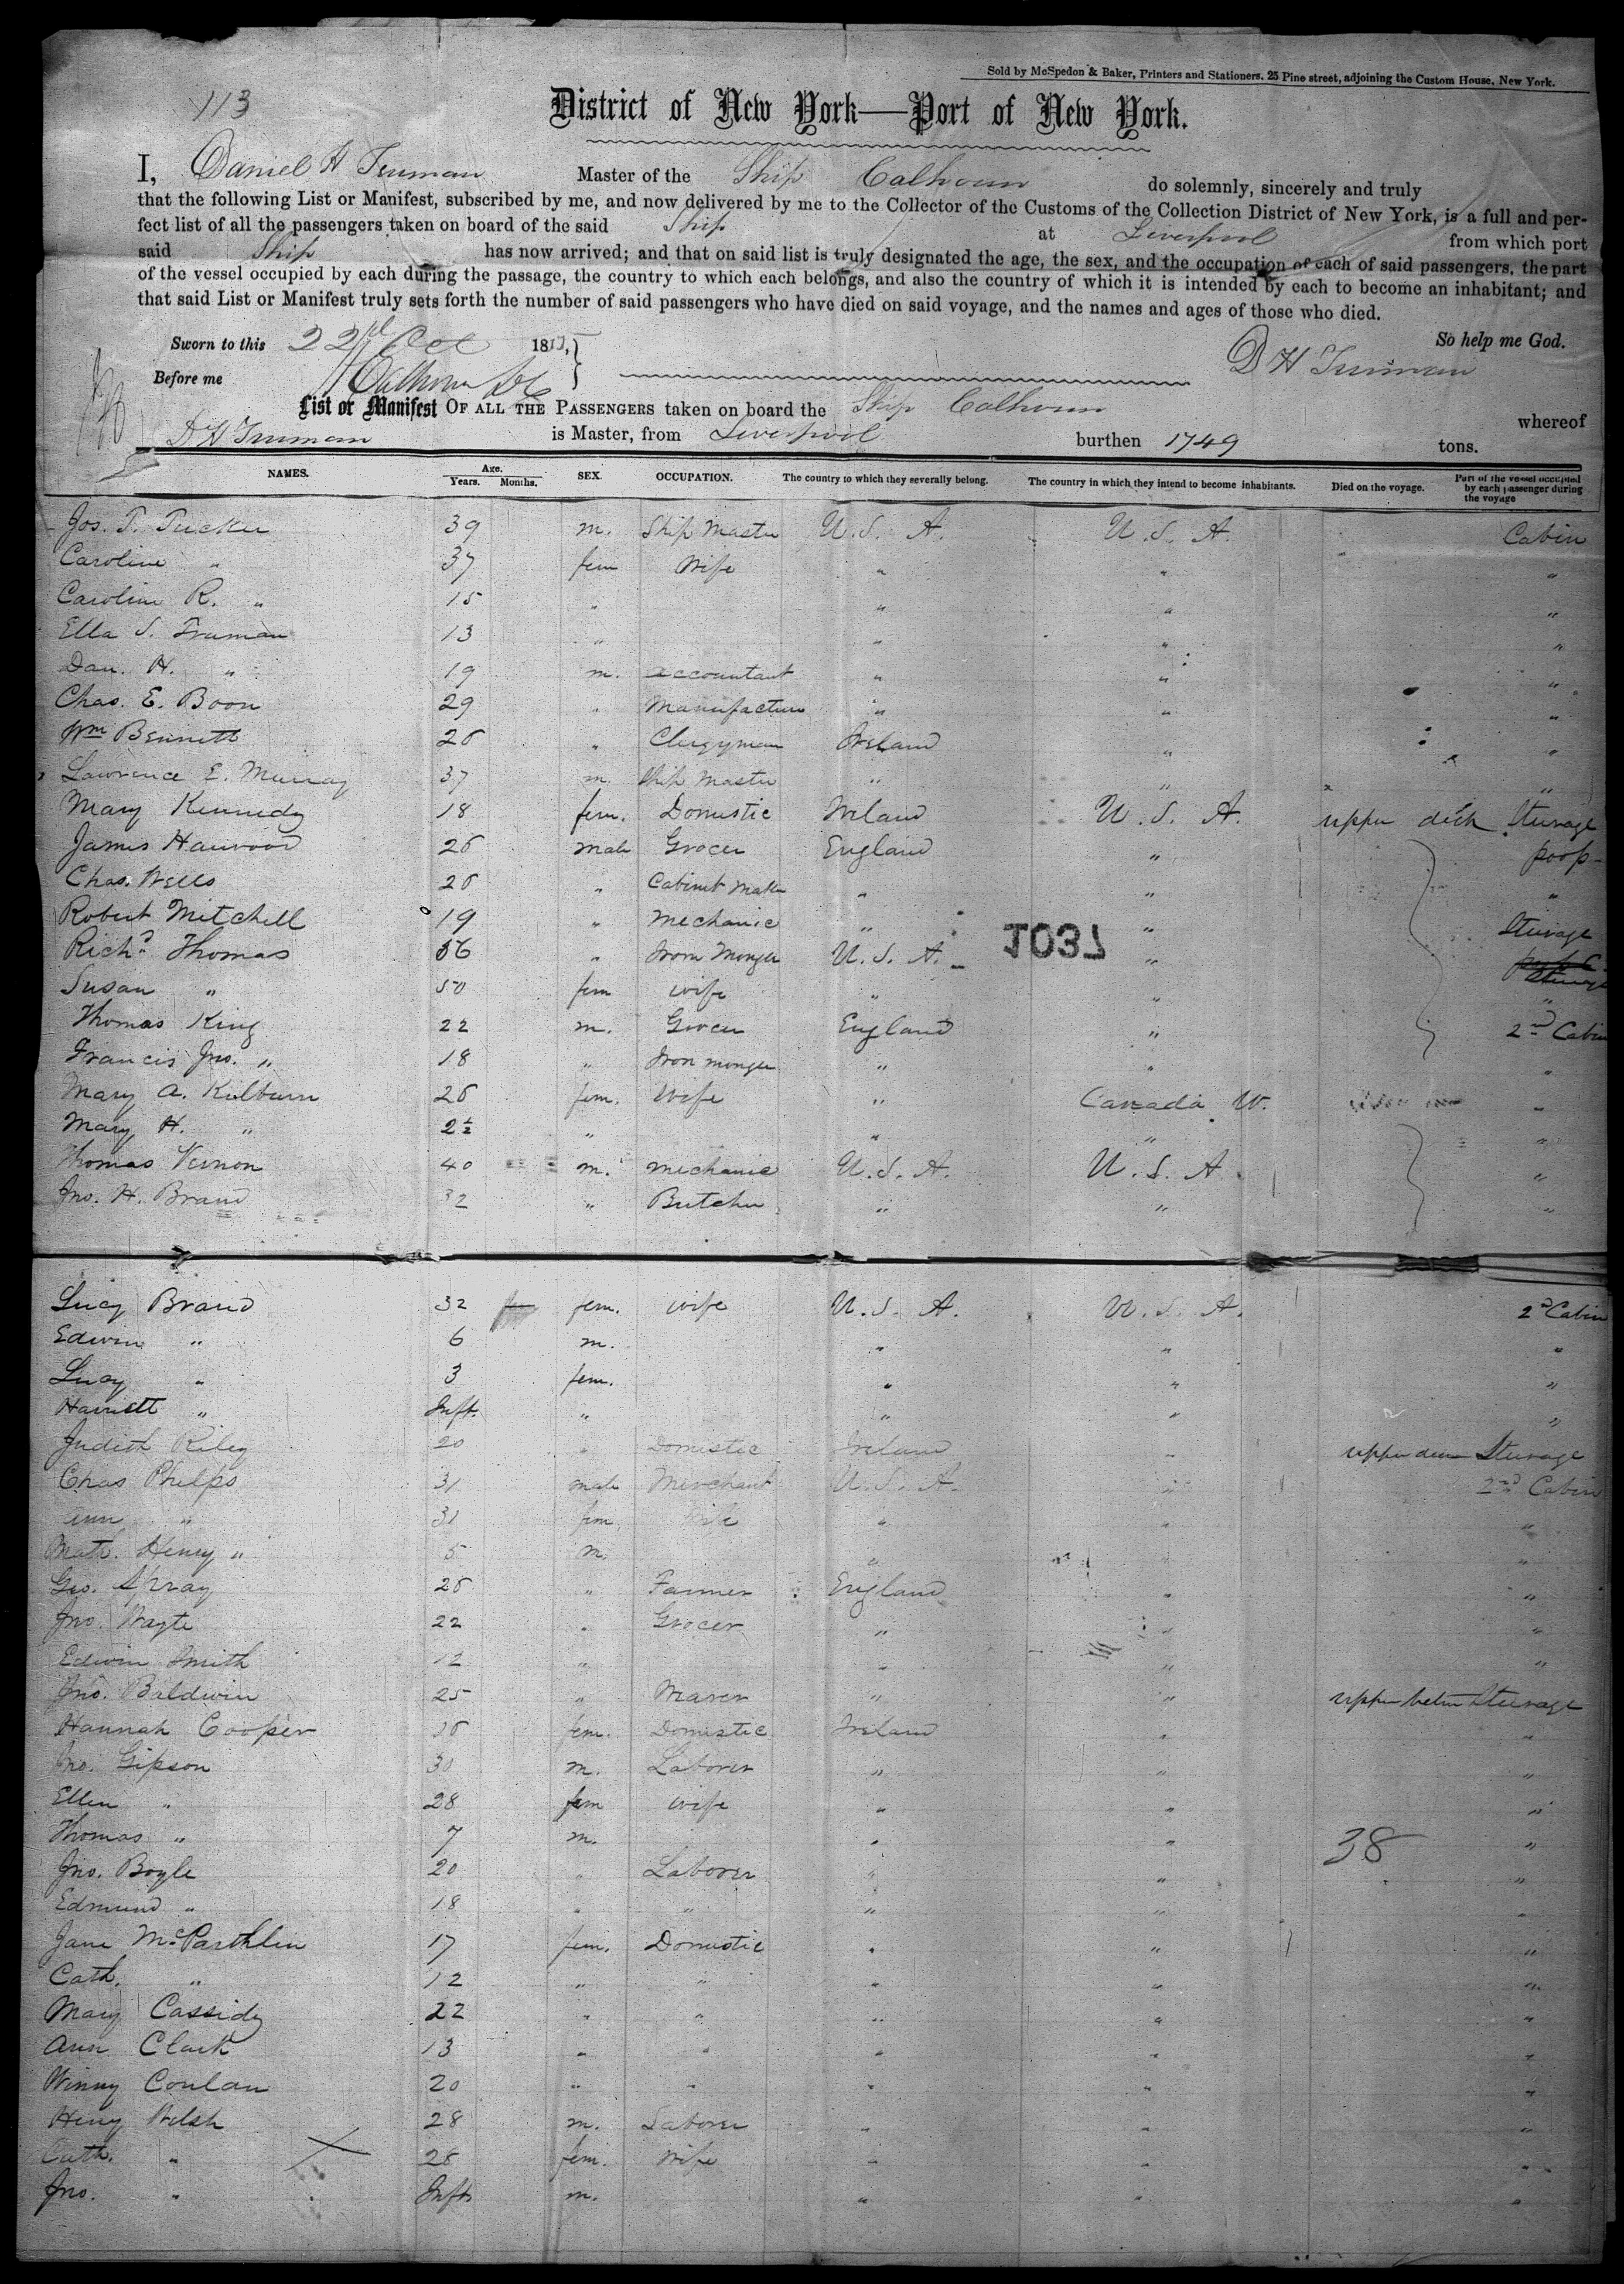 Sold by McSpedon & Baker, Printers and Stationers, 25 Pine street, adjoining the Custom House, New York.
113
District of New York—Port of New York.
I, Daniel H Truman Master of the Ship Calhoun do solemnly, sincerely and truly
that the following List or Manifest, subscribed by me, and now delivered by me to the Collector of the Customs of the Collection District of New York, is a full and per-
fect list of all the passengers taken on board of the said Ship at Liverpool from which port
said Ship has now arrived; and that on said list is truly designated the age, the sex, and the occupation of each of said passengers, the part
of the vessel occupied by each during the passage, the country to which each belongs, and also the country of which it is intended by each to become an inhabitant; and
that said List or Manifest truly sets forth the number of said passengers who have died on said voyage, and the names and ages of those who died.
Sworn to this 22d Oct 18 So help me God.
Before me D H Truman
List or Manifest OF ALL THE PASSENGERS taken on board the Ship Calhoun whereof
D H Truman is Master, from Liverpool burthen 1749 tons.
NAMES. Age. Years. Months. SEX. OCCUPATION. The country to which they severally belong. The country in which they intend to become inhabitants. Died on the voyage. Part of the vessel occupied by each passenger during the voyage
Jos. T. Tucker 39 m. Ship Master U. S. A. U. S. A. Cabin
Caroline " 37 fem Wife " " "
Caroline R. " 15 " " " "
Ella S. Truman 13 " " " "
Dan. H. " 19 m. accountant " " "
Chas. E. Boon 29 " Manufacturer " " "
Wm Bennett 26 " Clergyman Ireland " "
Lawrence E. Murray 37 m. Ship Master " " "
Mary Kennedy 18 fem. Domestic Ireland U. S. A. upper deck Steerage
James Harwood 26 male Grocer England " poop
Chas. Wells 26 " Cabinet Maker " " "
Robert Mitchell 19 " Mechanic " " Steerage
1037
Richd Thomas 56 " Iron Monger U. S. A. "
Susan " 50 fem wife " " "
Thomas King 22 m. Grocer England " 2nd Cabin
Francis Jno. " 18 " Iron monger " " "
Mary A. Kilburn 26 fem. Wife " Canada W. "
Mary H. " 2½ " " " "
Thomas Vernon 40 m. mechanic U. S. A. U. S. A "
Jno. H. Brand 32 " Butcher " " "
Lucy Brand 32 fem. wife U. S. A. U. S. A. 2d Cabin
Edwin " 6 m. " " "
Lucy " 3 fem. " " "
Harriett " Inft. " " " "
Judith Riley 20 " Domestic Ireland " upper deck Steerage
Chas Phelps 31 male Merchant U. S. A. " 2nd Cabin
Ann " 31 fem Wife " " "
Math. Henry " 5 m. " " "
Geo. Spray 26 " Farmer England " "
Jno. Wayte 22 " Grocer " " "
Edwin Smith 12 " " " "
Jno. Baldwin 25 " Weaver " " upper betw Steerage
Hannah Cooper 16 fem. Domestic Ireland " "
Jno. Gipson 30 m. Laborer " " "
Ellen " 28 fem wife " " "
Thomas " 7 m. " " 38 "
Jno. Boyle 20 " Laborer " " "
Edmund " 18 " " " " "
Jane McParthlin 17 fem. Domestic " " "
Cath. " 12 " " " " "
Mary Cassidy 22 " " " " "
Ann Clark 13 " " " " "
Winny Conlan 20 " " " " "
Heny Welsh 28 m. Laborer " " "
Cath. " 26 fem. Wife " " "
Jno. " Inft m. " " "